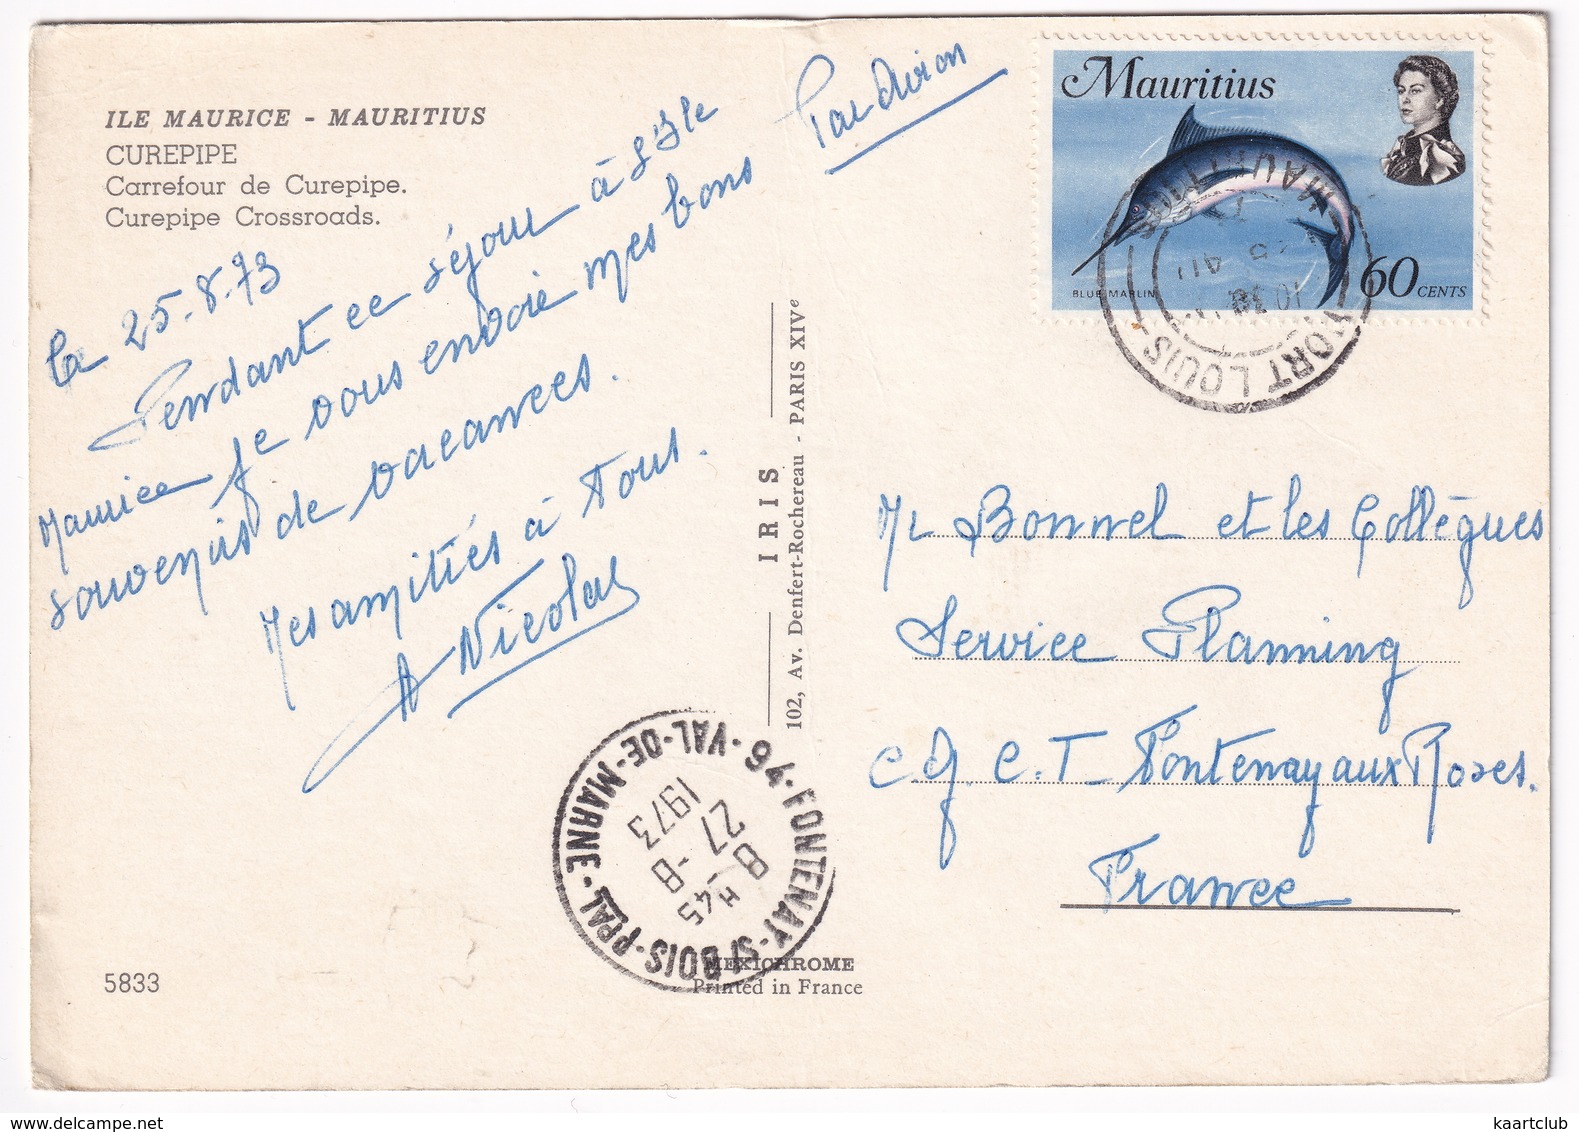 ILE MAURICE - MAURITIUS
CUREPIPE
Carrefour de Curepipe.
Curepipe Crossroads.
Le 25.8.73
Pendant ce séjour à l'Ile
Maurice je vous envoie mes bons
souvenirs de vacances.
Mes amitiés à tous.
A Nicolas
5833
IRIS
102, Av. Denfert-Rochereau - PARIS XIVe
MEXICHROME
Printed in France
94-FONTENAY-S/BOIS-PPAL-VAL-DE-MARNE
8 H45
27 -8
1973
Par Avion
Mauritius
BLUE MARLIN
60 CENTS
PORT LOUIS
MAURITIUS
Mr Bonnel et les Collègues
Service Planning
C.G.C.T Fontenay aux Roses.
France
kaartclub